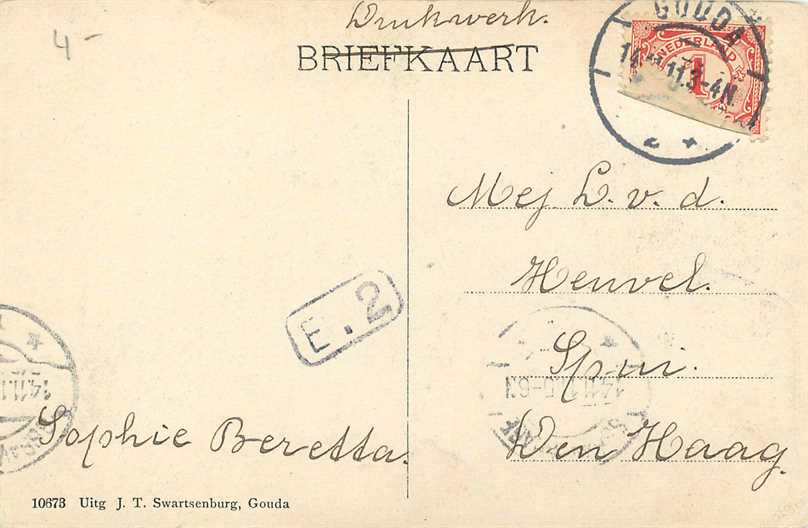 4 -
Drukwerk.
BRIEFKAART
GOUDA
14.11.11.3-4N
NEDERLAND
1
Mej L. v. d.
Heuvel.
Spui.
Den Haag.
E.2
Sophie Beretta.
10673 Uitg J. T. Swartsenburg, Gouda